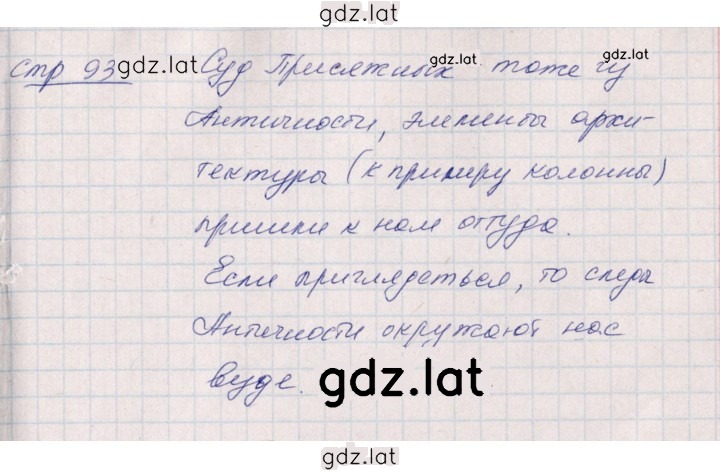 gdz.lat
стр 93 gdz.lat Суд Присяжных тоже из
Античности, элементы архи-
тектуры (к примеру колонны)
пришли к нам оттуда.
Если приглядеться, то следы
Античности окружают нас
вуде.
gdz.lat
gdz.lat